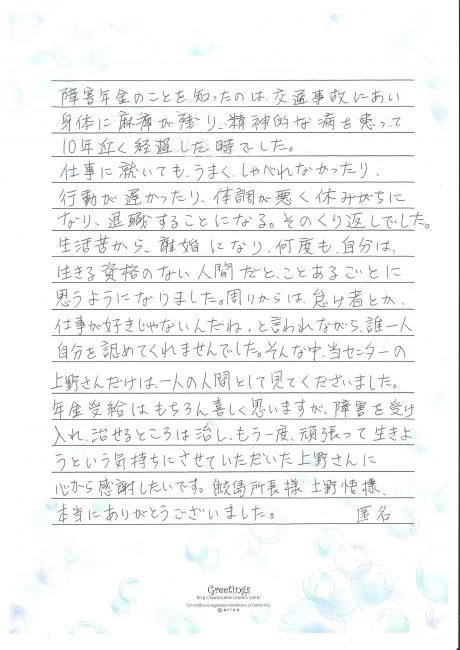 障害年金のことを知ったのは、交通事故にあい
身体に麻痺が残り、精神的な病を患って
10年近く経過した時でした。
仕事に就いても、うまく、しゃべれなかったり、
行動が遅かったり、体調が悪く休みがちに
なり、退職することになる。そのくり返しでした。
生活苦から、離婚になり、何度も、自分は、
生きる資格のない人間だと、ことあるごとに
思うようになりました。周りからは、怠け者とか、
仕事が好きじゃないんだね。と言われながら、誰一人
自分を認めてくれませんでした。そんな中、当センターの
上野さんだけは、一人の人間として見てくださいました。
年金受給は、もちろん喜しく思いますが、障害を受け
入れ、治せるところは治し、もう一度、頑張って生きよ
うという気持ちにさせていただいた上野さんに
心から感謝したいです。鮫島所長様 上野悟様、
本当にありがとうございました。 匿名
Greetings